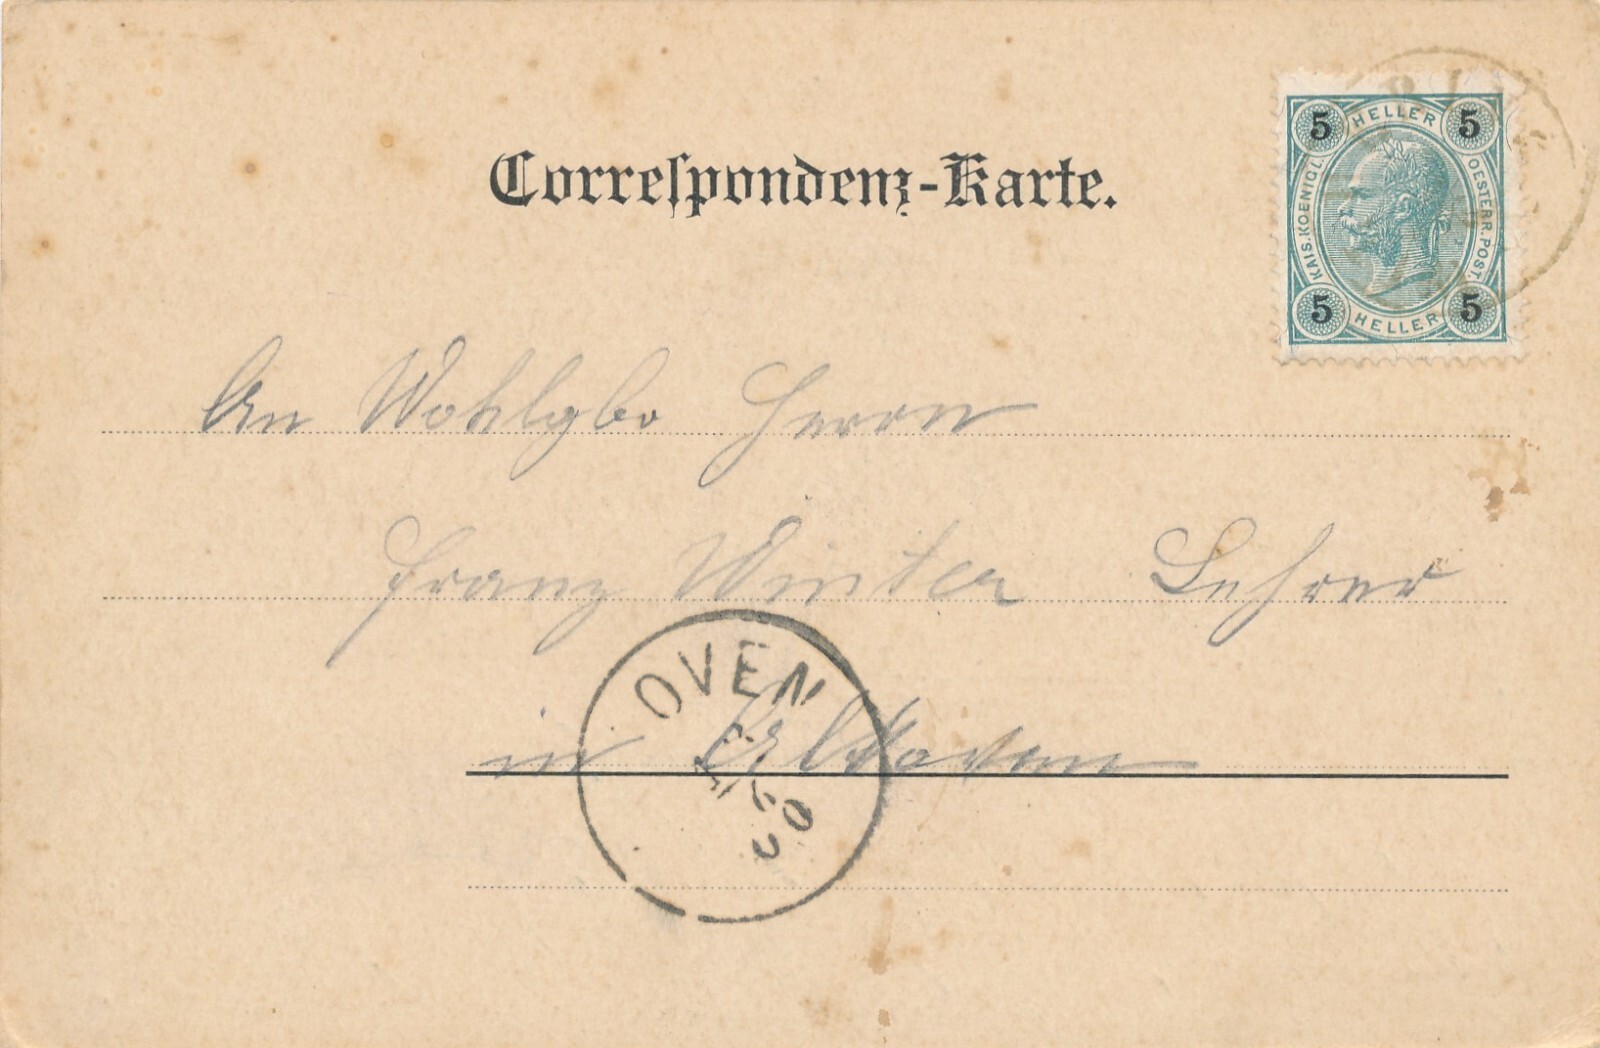 Correspondenz-Karte.
5 HELLER 5
KAIS. KOENIGL. OESTERR. POST.
5 HELLER 5
An Wohlgbo Herrn
Franz Winter Lehrer
in
OVEN